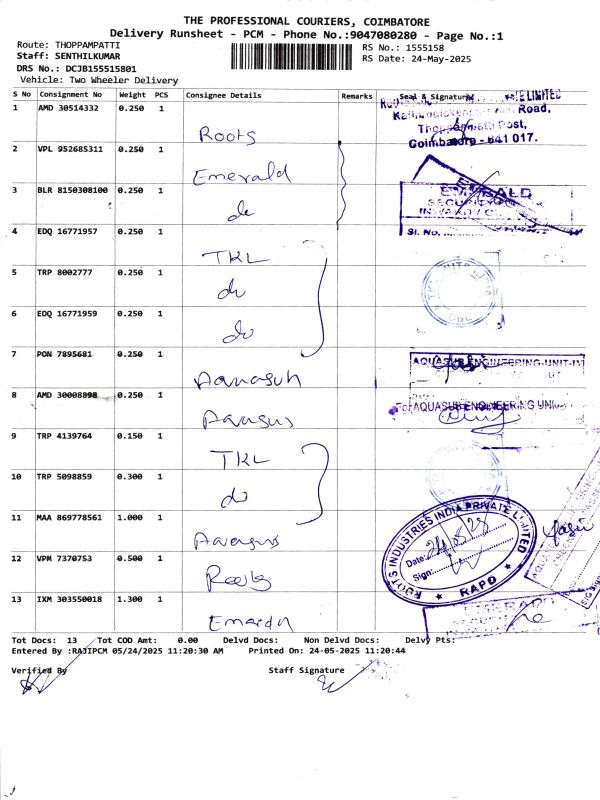 THE PROFESSIONAL COURIERS, COIMBATORE
Delivery Runsheet - PCM - Phone No.:9047080280 - Page No.:1
Route: THOPPAMPATTI
Staff: SENTHILKUMAR
DRS No.: DCJB155515801
Vehicle: Two Wheeler Delivery
RS No.: 1555158
RS Date: 24-May-2025
S No Consignment No Weight PCS Consignee Details Remarks Seal & Signature
1 AMD 30514332 0.250 1 Roots
2 VPL 952685311 0.250 1 Emerald
3 BLR 8150308100 0.250 1 do
4 EDQ 16771957 0.250 1 TKL
5 TRP 8002777 0.250 1 do
6 EDQ 16771959 0.250 1 do
7 PON 7895681 0.250 1
8 AMD 30008898 0.250 1
9 TRP 4139764 0.150 1 TKL
10 TRP 5098859 0.300 1 do
11 MAA 869778561 1.000 1
12 VPM 7370753 0.500 1 Roots
13 IXM 303550018 1.300 1
LIMITED
Road,
Thoppampatti Post,
Coimbatore - 641 017.
EMERALD
SECURITY
INWARD
Sl. No.
AQUASUB ENGINEERING-UNIT-IV
For AQUASUB ENGINEERING UNIT
ROOTS INDUSTRIES INDIA PRIVATE LIMITED
Date:
Sign:
RAPD
Tot Docs: 13 Tot COD Amt: 0.00 Delvd Docs: Non Delvd Docs: Delvy Pts:
Entered By :RAJIPCM 05/24/2025 11:20:30 AM Printed On: 24-05-2025 11:20:44
Verified By Staff Signature